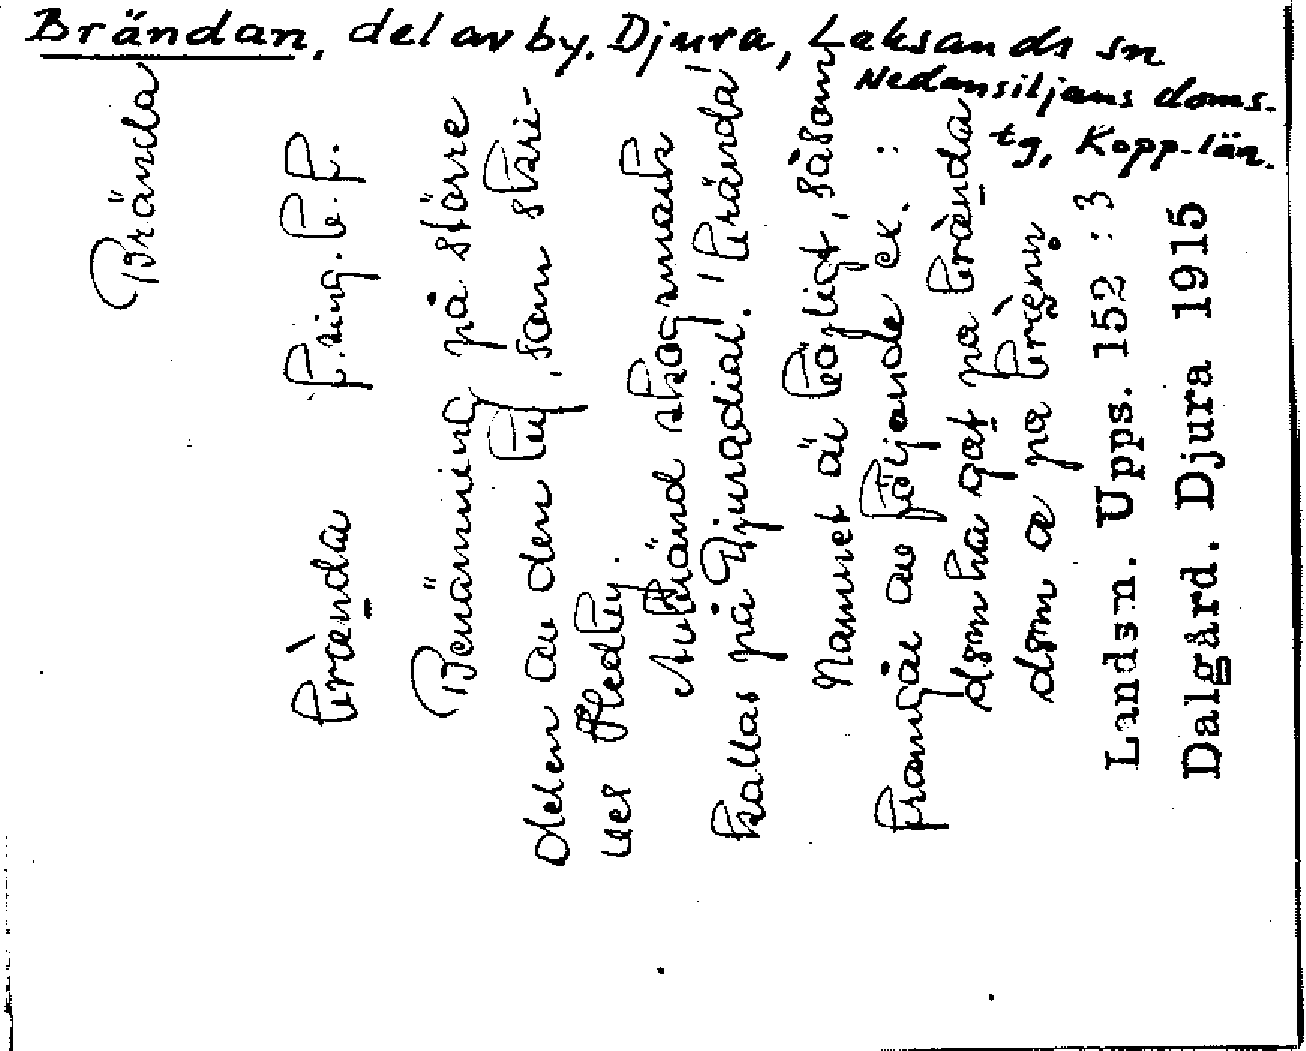 Brändan, del av by, Djura, Leksands sn
Nedansiljans doms-
tg, Kopp. län.
Brända
bræ̀nda f. sing. b. f.
Benämning på större
delen av den by, som skri-
ves Hedby.
Avbränd skogsmark
kallas på Djuradial. 'brända'
Namnet är böjligt, såsom
framgår av följande ex. :
dsom ha gat pa brænda
dsom æ pa bræ̀nn̥
Landsm. Upps. 152 : 3
Dalgård. Djura 1915